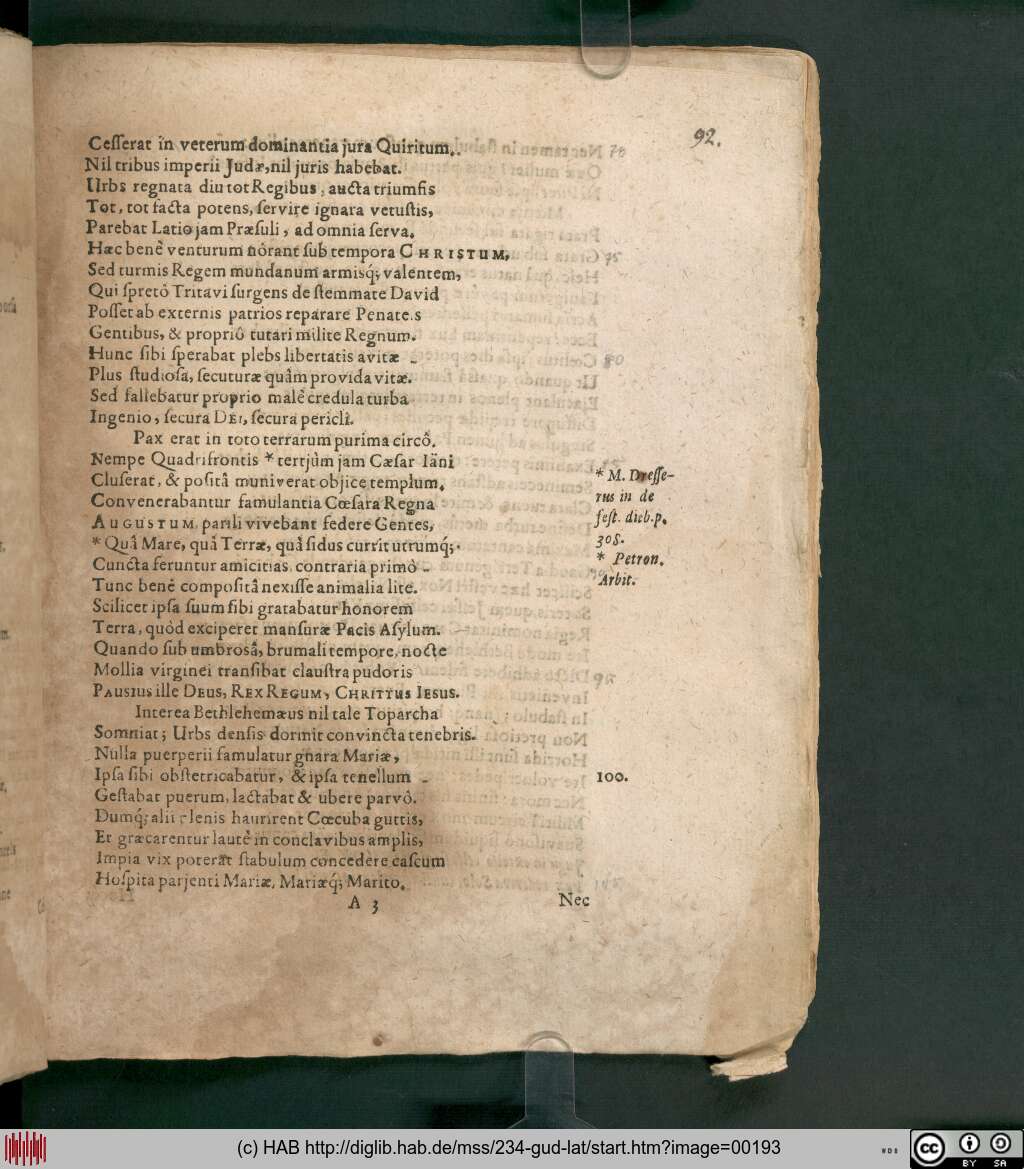 92.
Cesserat in veterum dominantia jura Quiritum.
Nil tribus imperii Judæ, nil juris habebat.
Urbs regnata diu tot Regibus, aucta triumfis
Tot, tot facta potens, servire ignara vetustis,
Parebat Latio jam Præsuli, ad omnia serva.
Hæc benè venturum nôrant sub tempora CHRISTUM,
Sed turmis Regem mundanum armisq́; valentem,
Qui spretô Tritavi surgens de stemmate David
Posset ab externis patrios reparare Penates
Gentibus, & propriô tutari milite Regnum.
Hunc sibi sperabat plebs libertatis avitæ
Plus studiosa, secuturæ quâm provida vitæ.
Sed fallebatur proprio malè credula turba
Ingenio, secura DEI, secura pericli.
Pax erat in toto terrarum purima circô.
Nempe Quadrifrontis * tertjùm jam Cæsar Iäni
Cluserat, & positâ muniverat objice templum.
Convenerabantur famulantia Cœsara Regna
AUGUSTUM, parili vivebant federe Gentes,
* Quâ Mare, quâ Terræ, quâ sidus currit utrumq́;
Cuncta feruntur amicitias contraria primò
Tunc benè compositâ nexisse animalia lite.
Scilicet ipsa suum sibi gratabatur honorem
Terra, quòd exciperet mansuræ Pacis Asylum.
Quando sub umbrosâ, brumali tempore, nocte
Mollia virginei transibat claustra pudoris
PAUSIUS ille DEUS, REX REGUM, CHRITTUS IESUS.
Interea Bethlehemæus nil tale Toparcha
Somniat; Urbs densis dormit convincta tenebris.
Nulla puerperii famulatur gnara Mariæ,
Ipsa sibi obstetricabatur, & ipsa tenellum
Gestabat puerum, lactabat & ubere parvô.
Dumq́; alii plenis haurirent Cœcuba guttis,
Et græcarentur lautè in conclavibus amplis,
Impia vix poterat stabulum concedere cascum
Hospita parjenti Mariæ, Mariæq́; Marito.
A 3
Nec
* M. Dresse-
rus in de
fest. dieb. p.
308.
* Petron.
Arbit.
100.
(c) HAB http://diglib.hab.de/mss/234-gud-lat/start.htm?image=00193
WDB
cc BY SA